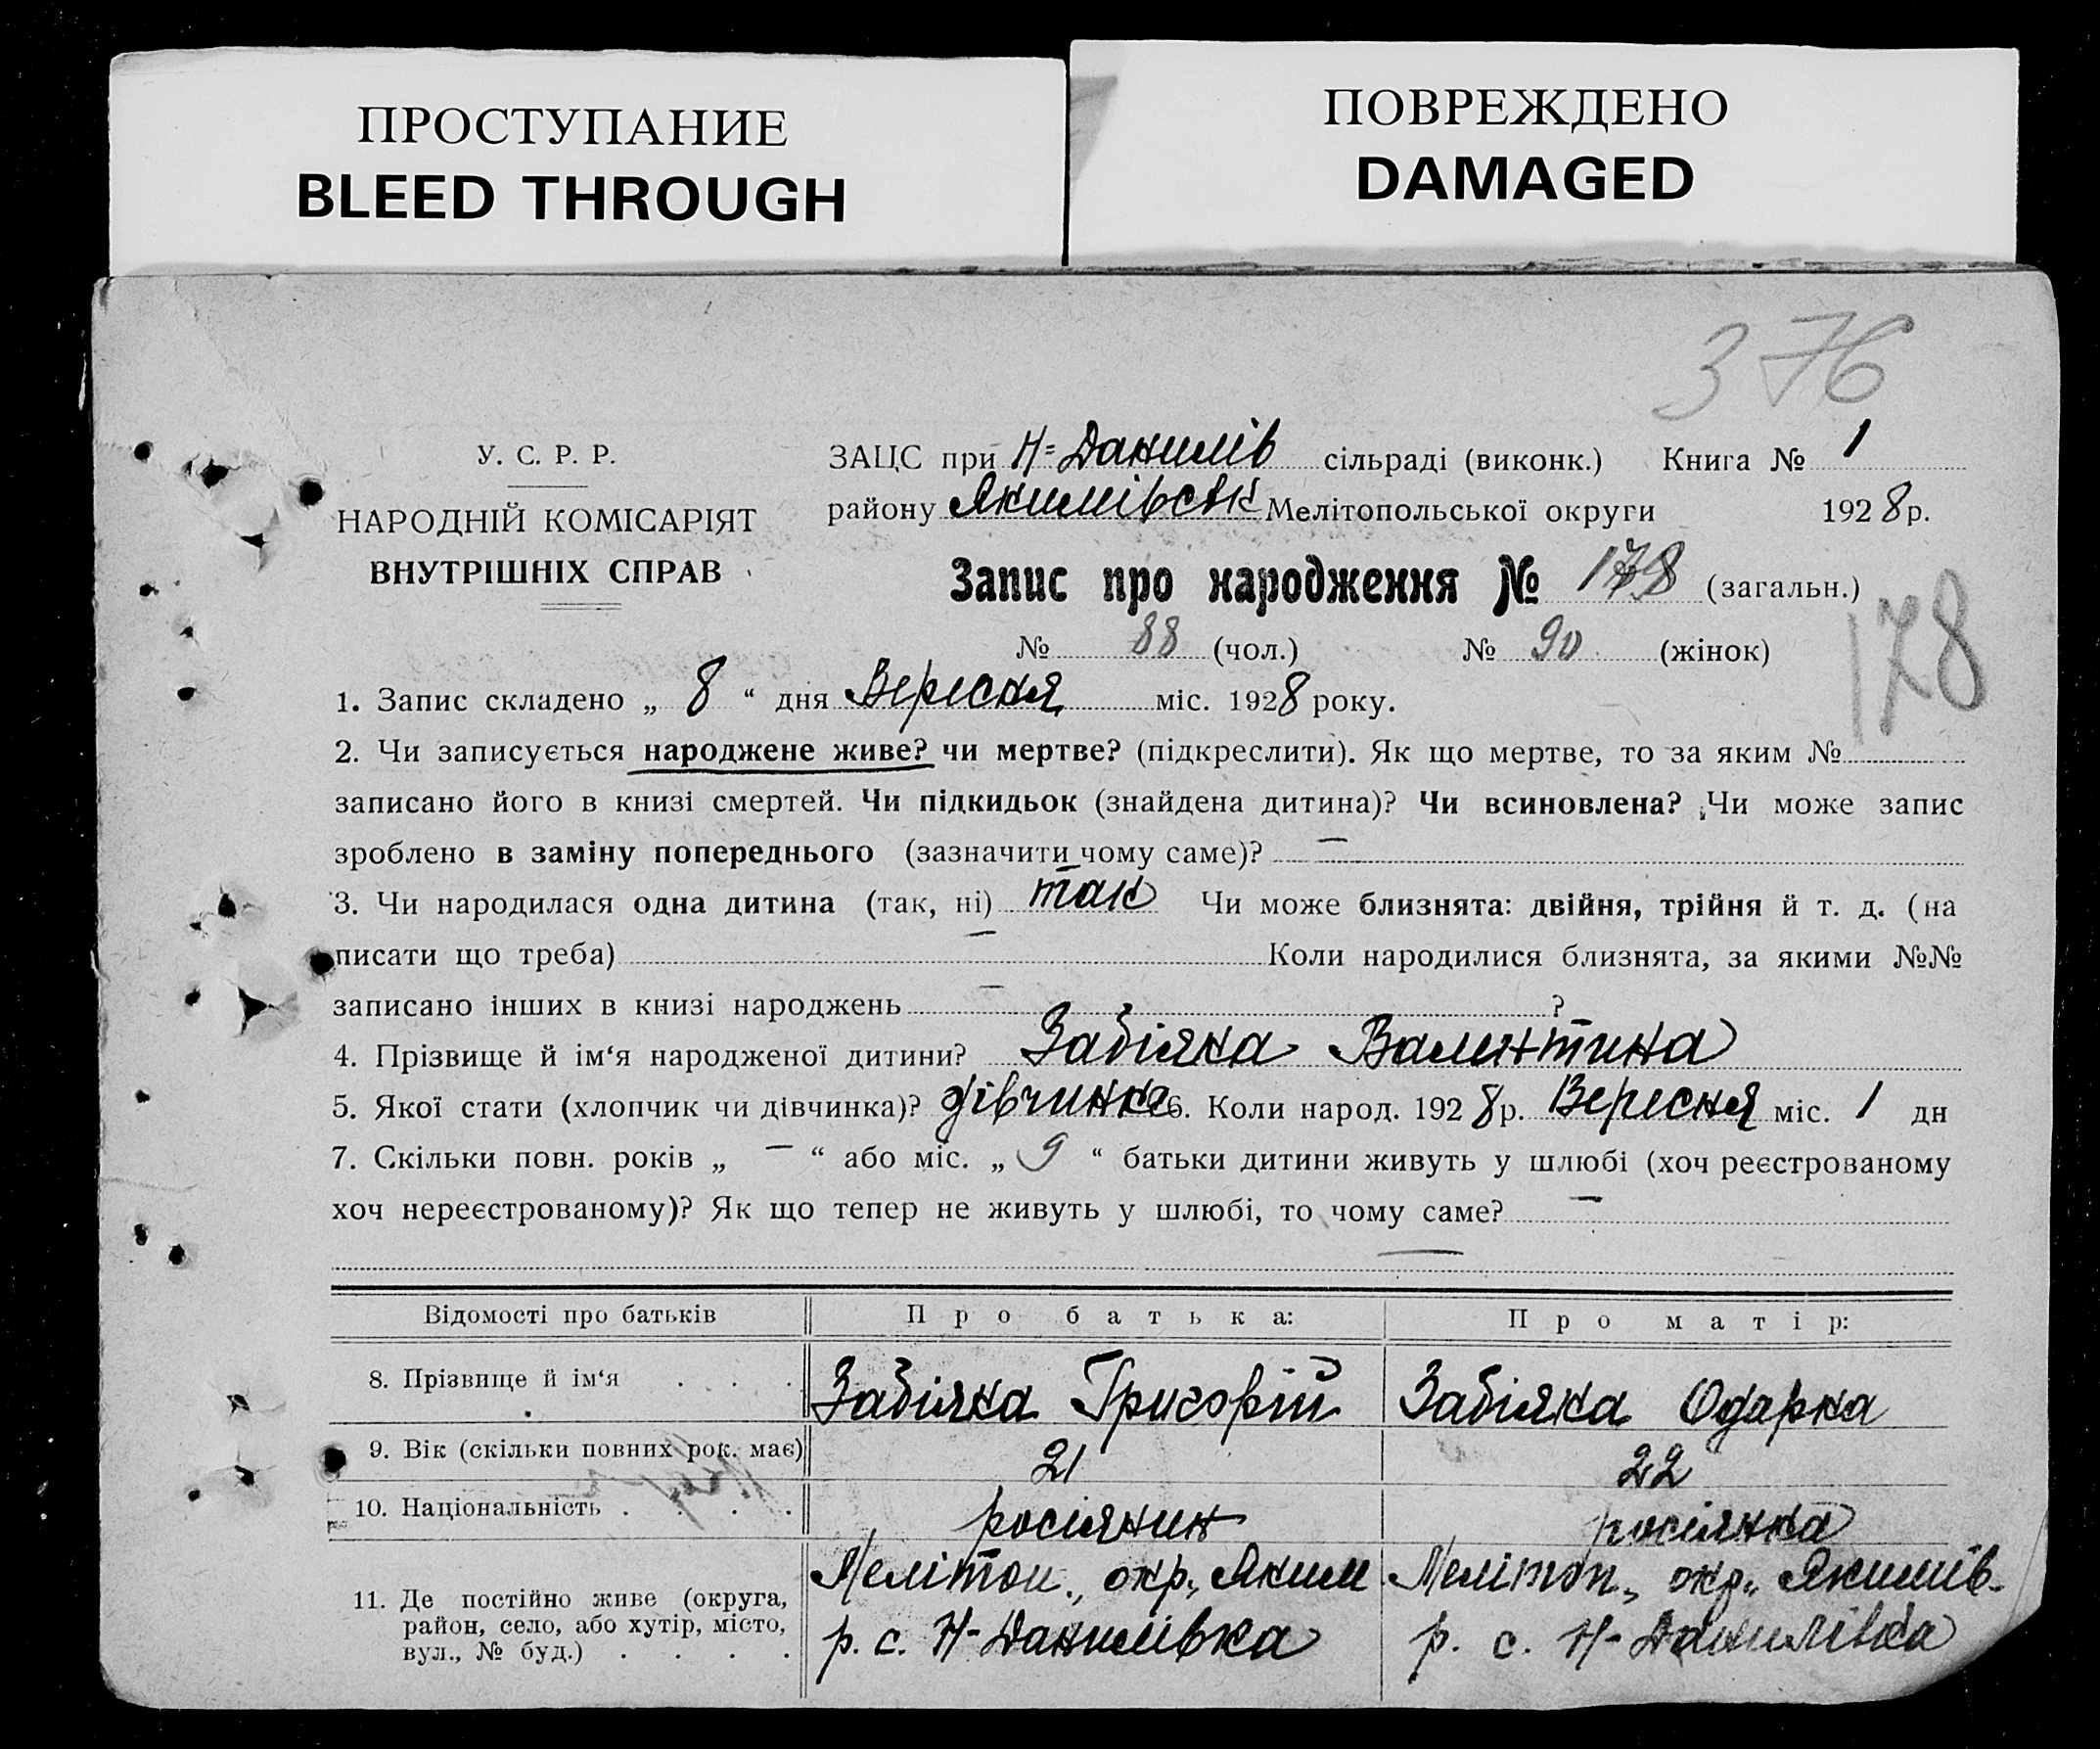 ПРОСТУПАНИЕ
BLEED THROUGH
ПОВРЕЖДЕНО
DAMAGED
376
У. С. Р. Р.
НАРОДНІЙ КОМІСАРІЯТ
ВНУТРІШНІХ СПРАВ
ЗАЦС при Н=Данилів сільраді (виконк.) Книга № 1
району Якимівськ Мелітопольської округи 1928 р.
Запис про народження № 178 (загальн.)
178
№ 88 (чол.) № 90 (жінок)
1. Запис складено „ 8 “ дня Вересня міс. 1928 року.
2. Чи записується народжене живе? чи мертве? (підкреслити). Як що мертве, то за яким №
записано його в книзі смертей. Чи підкидьок (знайдена дитина)? Чи всиновлена? Чи може запис
зроблено в заміну попереднього (зазначити чому саме)? —
3. Чи народилася одна дитина (так, ні) так Чи може близнята: двійня, трійня й т. д. (на
писати що треба) — Коли народилися близнята, за якими №№
записано інших в книзі народжень — ?
4. Прізвище й ім‘я народженої дитини? Забіяка Валинтина
5. Якої стати (хлопчик чи дівчинка)? дівчинка 6. Коли народ. 1928 р. Вересня міс. 1 дн
7. Скільки повн. років „ — “ або міс. „ 9 “ батьки дитини живуть у шлюбі (хоч реєстрованому
хоч нереєстрованому)? Як що тепер не живуть у шлюбі, то чому саме? —
Відомості про батьків Про батька: Про матір:
8. Прізвище й ім‘я . . . Забіяка Григорій Забіяка Одарка
9. Вік (скільки повних рок. має) 21 22
10. Національність . . . . росіянин росіянка
11. Де постійно живе (округа,
район, село, або хутір, місто,
вул., № буд.) . . . .
Мелітоп., окр., Яким
р. с. Н-Данилівка
Мелітоп., окр., Якимів-
р. с. Н-Данилівка